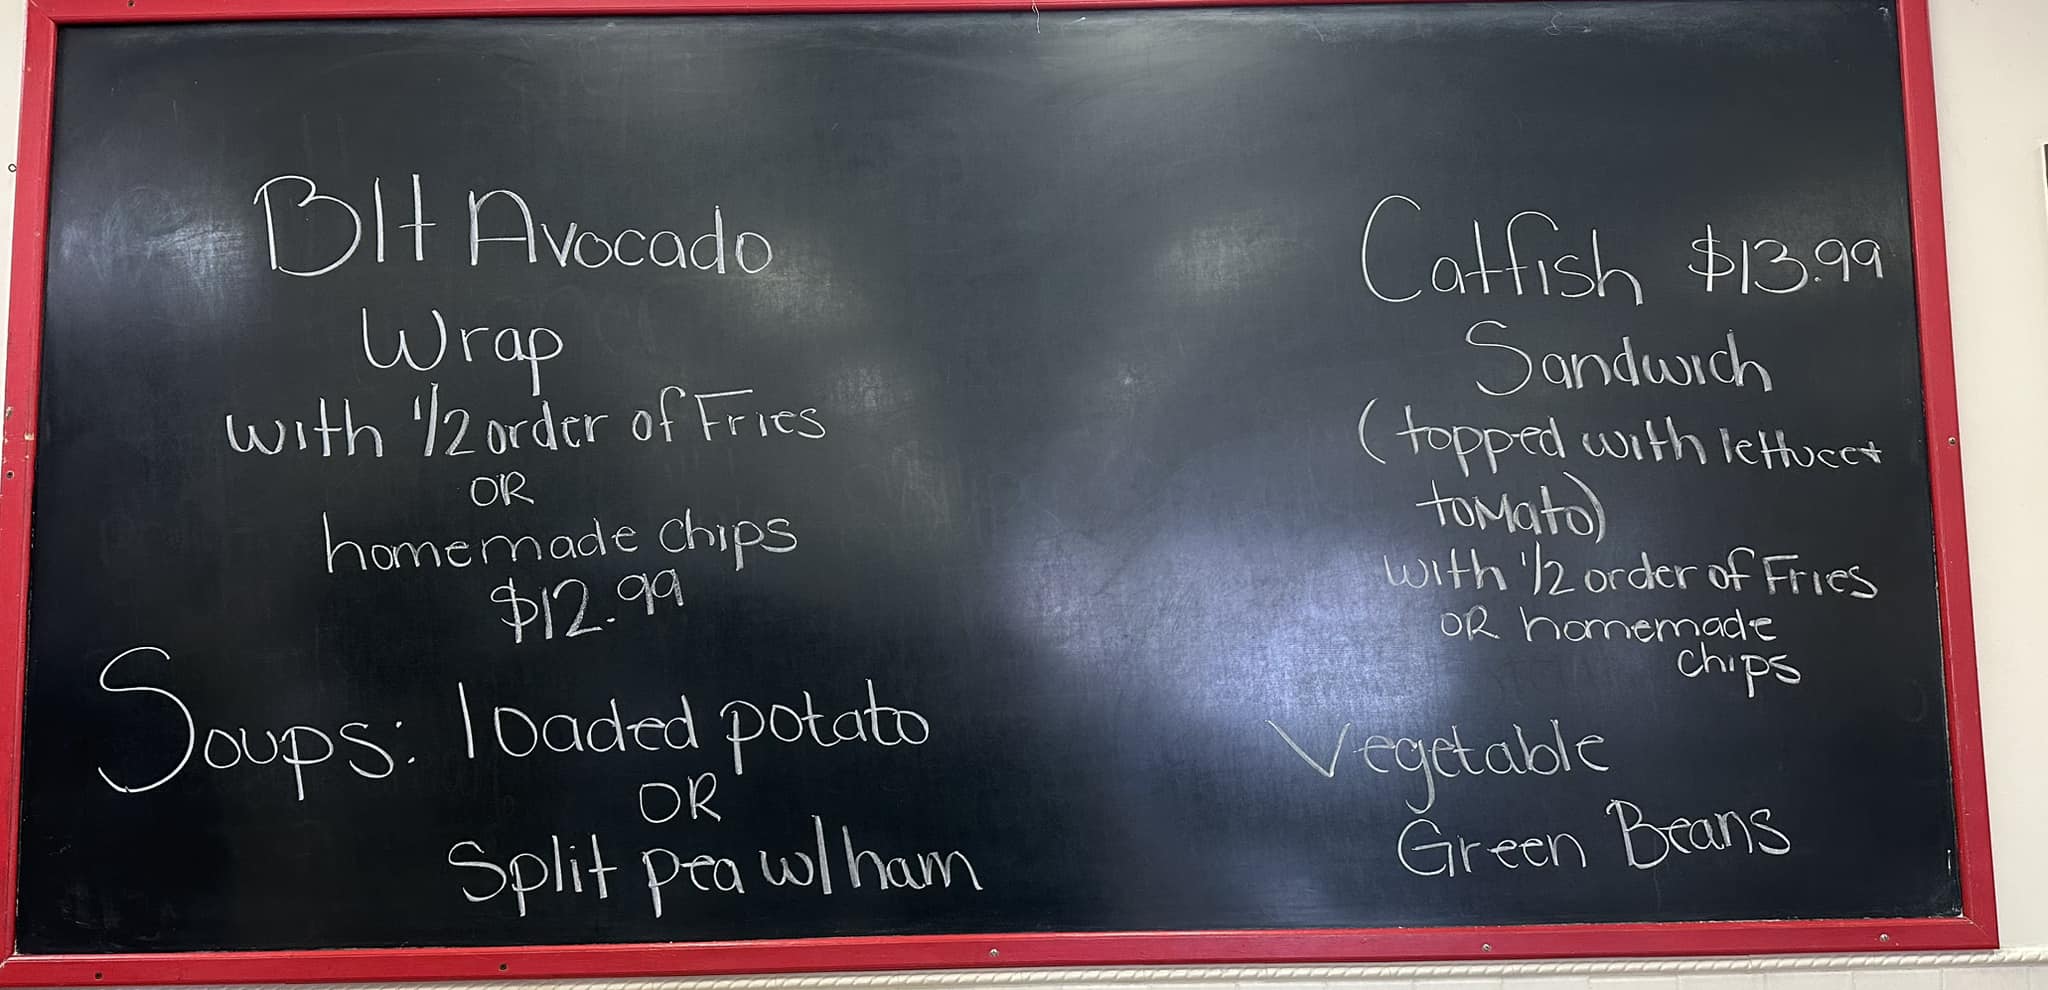 Blt Avocado
Wrap
with 1/2 order of Fries
OR
homemade chips
$12.99
Soups: loaded potato
OR
Split pea w/ ham
Catfish $13.99
Sandwich
(topped with lettuce +
tomato)
with 1/2 order of Fries
OR homemade
chips
Vegetable
Green Beans